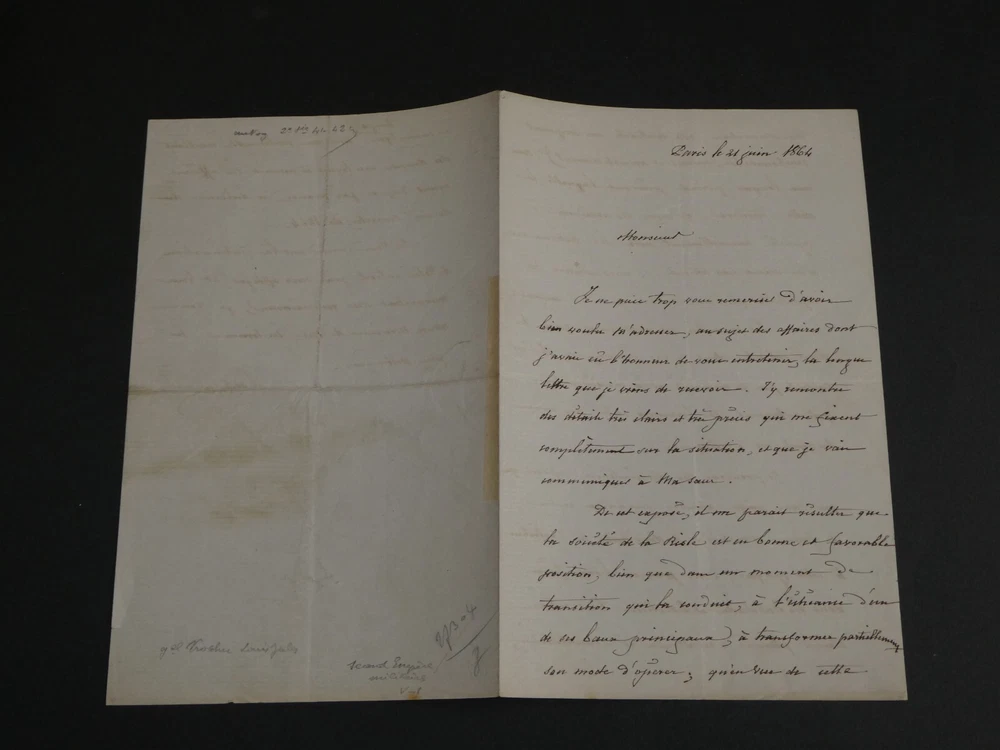 Paris le 21 juin 1864
Monsieur
Je ne puis trop vous remercier d'avoir
bien voulu m'adresser, au sujet des affaires dont
j'avais eû l'honneur de vous entretenir, la longue
lettre que je viens de recevoir. J'y rencontre
des détails très clairs et très précis qui me fixent
complètement sur la situation, et que je vais
communiquer à ma sœur.
De cet exposé, il me parait résulter que
la société de la Risle est en bonne et favorable
position, bien que dans un moment de
transition qui la conduit, à l'échéance d'un
de ses baux principaux, à transformer partiellement
son mode d'opérer; qu'en vue de cette
gal Trochu Louis Jules
second Empire
militaire